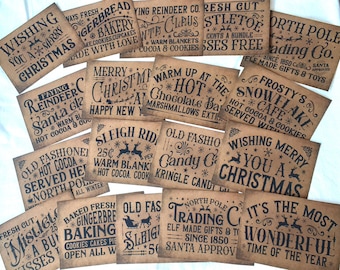 WISHING
YOU A MERRY
CHRISTMAS
GINGERBREAD
BAKERY
MADE WITH LOVE
REINDEER CO.
WARM BLANKETS
COCOA & COOKIES
FRESH CUT
MISTLETOE
KISSES FREE
NORTH POLE
Trading Co.
SINCE 1850
ELF MADE GIFTS & TOYS
FLYING
REINDEER
Santa
HOT COCOA & COOKIES
Merry
CHRISTMAS
HAPPY NEW YEAR
WARM UP AT THE
HOT
Chocolate Bar
MARSHMALLOWS EXTRA
FROSTY'S
SNOWFLAKE
CAFE
SERVED WITH COOKIES
OLD FASHIONED
HOT COCOA
SERVED HERE
NORTH POLE
ALL WINTER
SLEIGH RIDES
25¢
WARM BLANKETS
HOT COCOA
OLD FASHIONED
Candy Co.
KRINGLE CANDY
WISHING MERRY
YOU A
CHRISTMAS
FRESH CUT
Mistletoe
KISSES
BAKED FRESH
GINGERBREAD
BAKING
COOKIES CAKES
OPEN ALL
OLD FASHIONED
Sleigh
25¢
NORTH POLE
TRADING CO
ELF MADE GIFTS &
SINCE 1850
SANTA APPROVED
IT'S THE MOST
WONDERFUL!
TIME OF THE YEAR